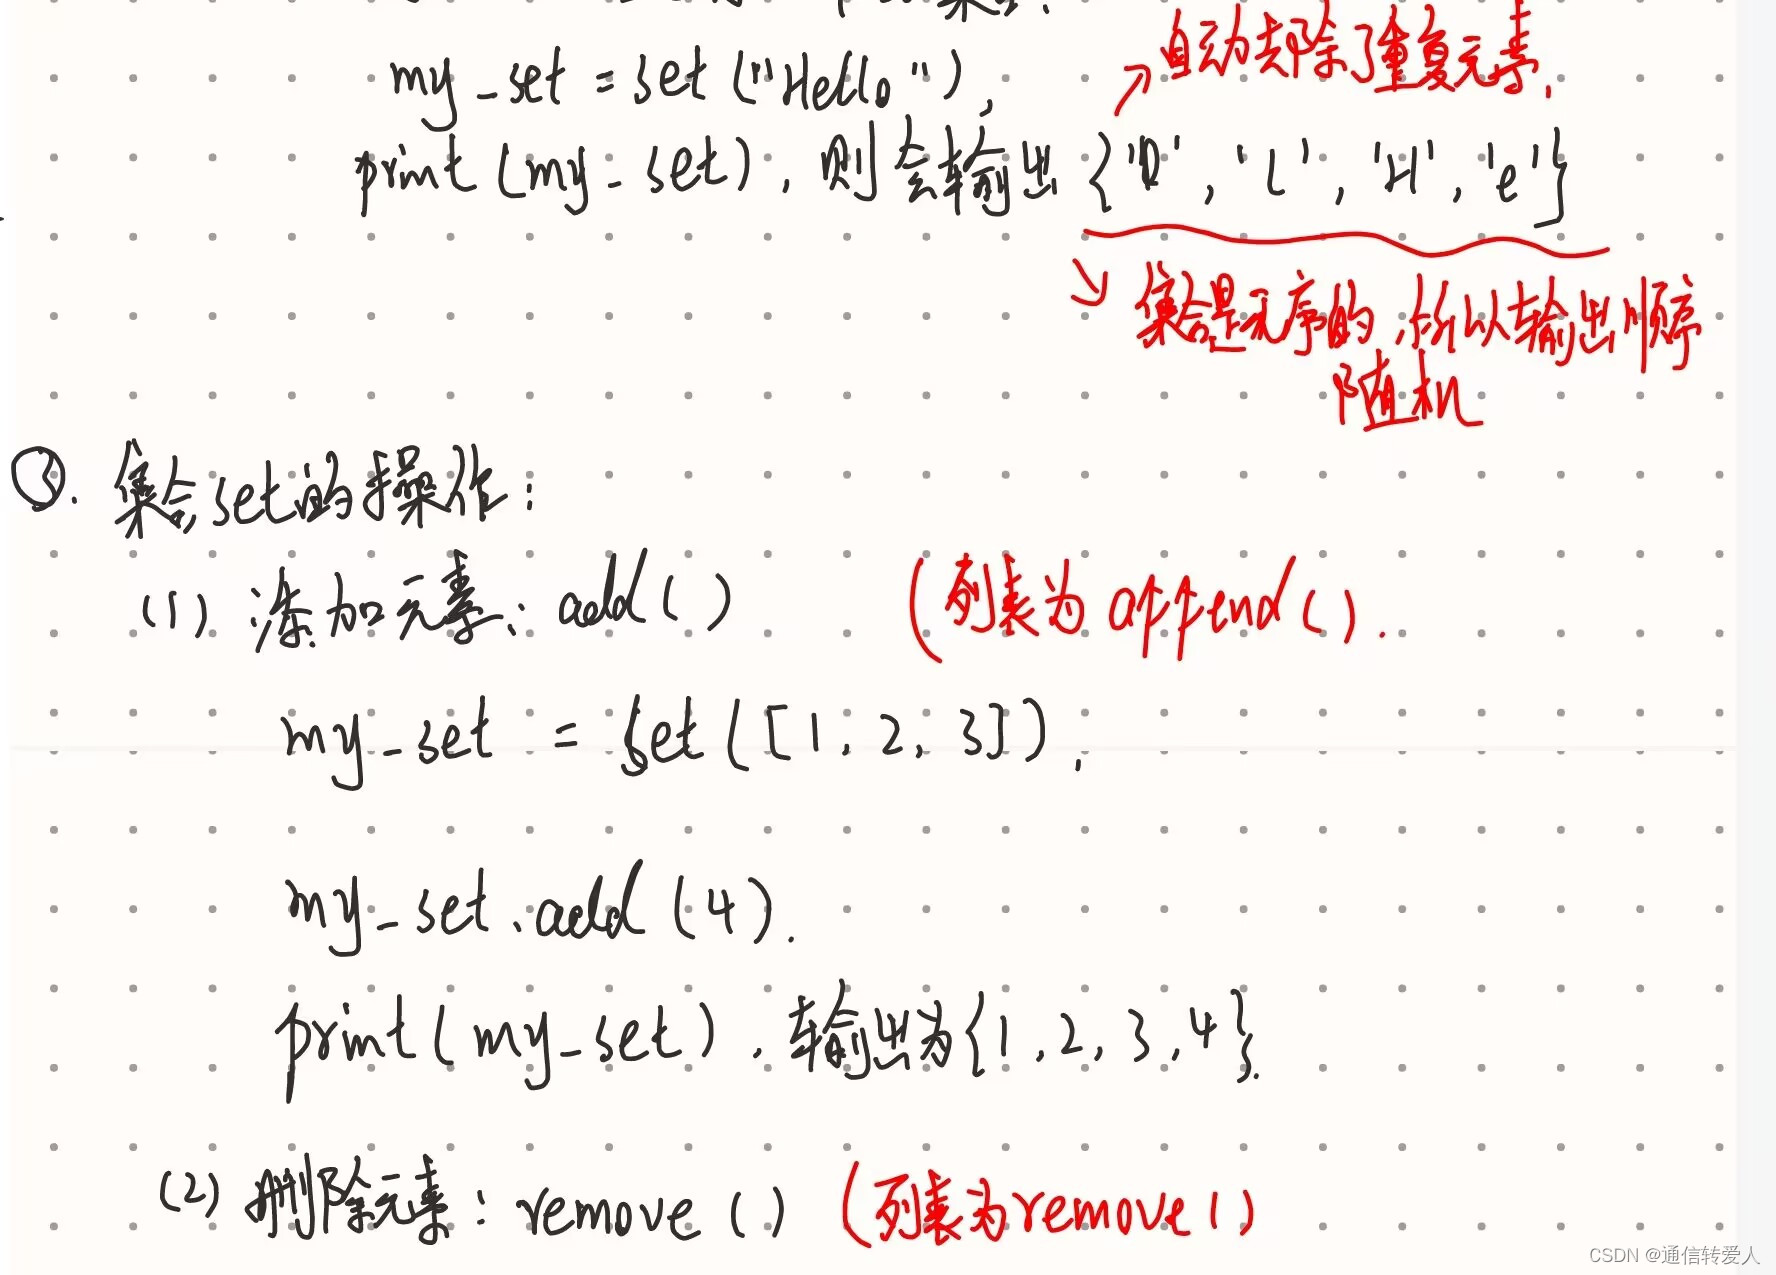 集合:
自动去除了重复元素.
my_set = set ("Hello"),
print (my_set), 则会输出 {'o', 'l', 'H', 'e'}
集合是无序的, 所以输出顺序
随机
集合set的操作:
(1) 添加元素: add() (列表为append().
my_set = set([1, 2, 3]),
my_set.add(4).
print(my_set), 输出为{1, 2, 3, 4}.
(2) 删除元素: remove() (列表为remove()
CSDN @通信转爱人